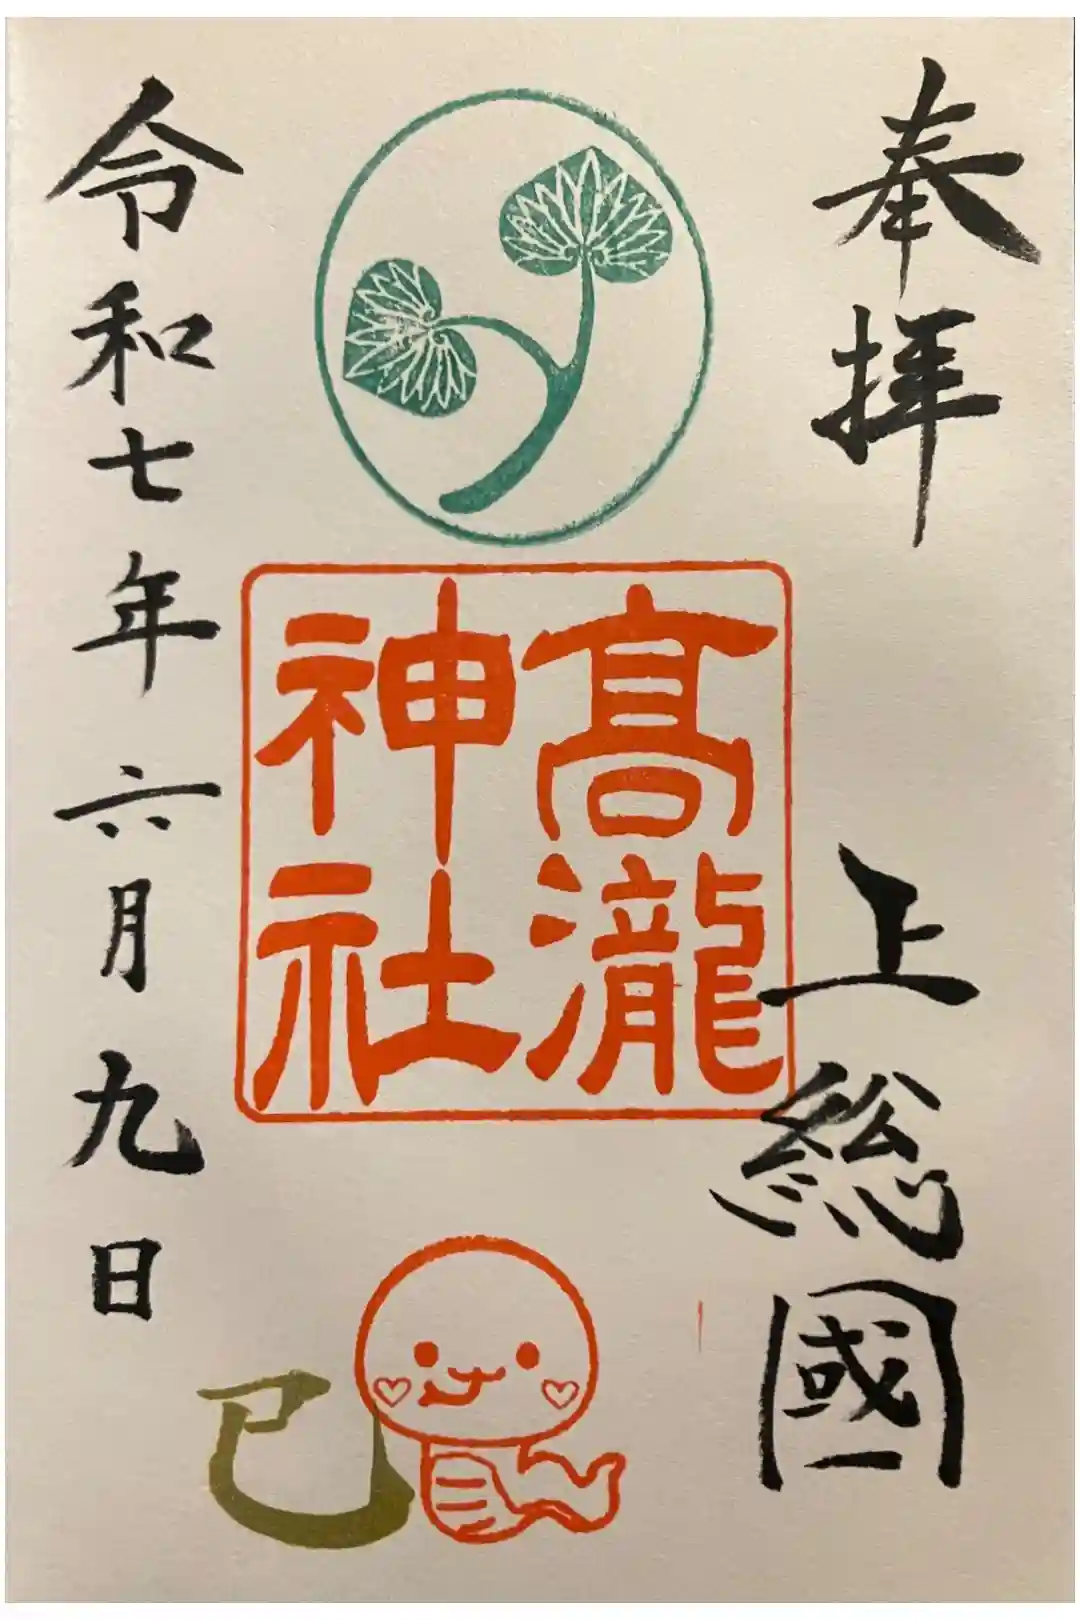 奉拝
上総國
高瀧
神社
令和七年六月九日
巳